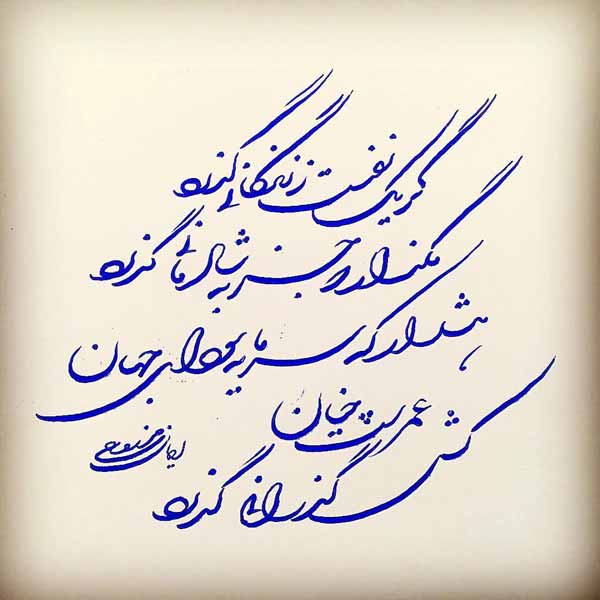 گر یک نفست ز زندگانی گذرد
مگذار که جز به شادمانی گذرد
هشدار که سرمایه سودای جهان
عمرست چنان
کش گذرانی گذرد